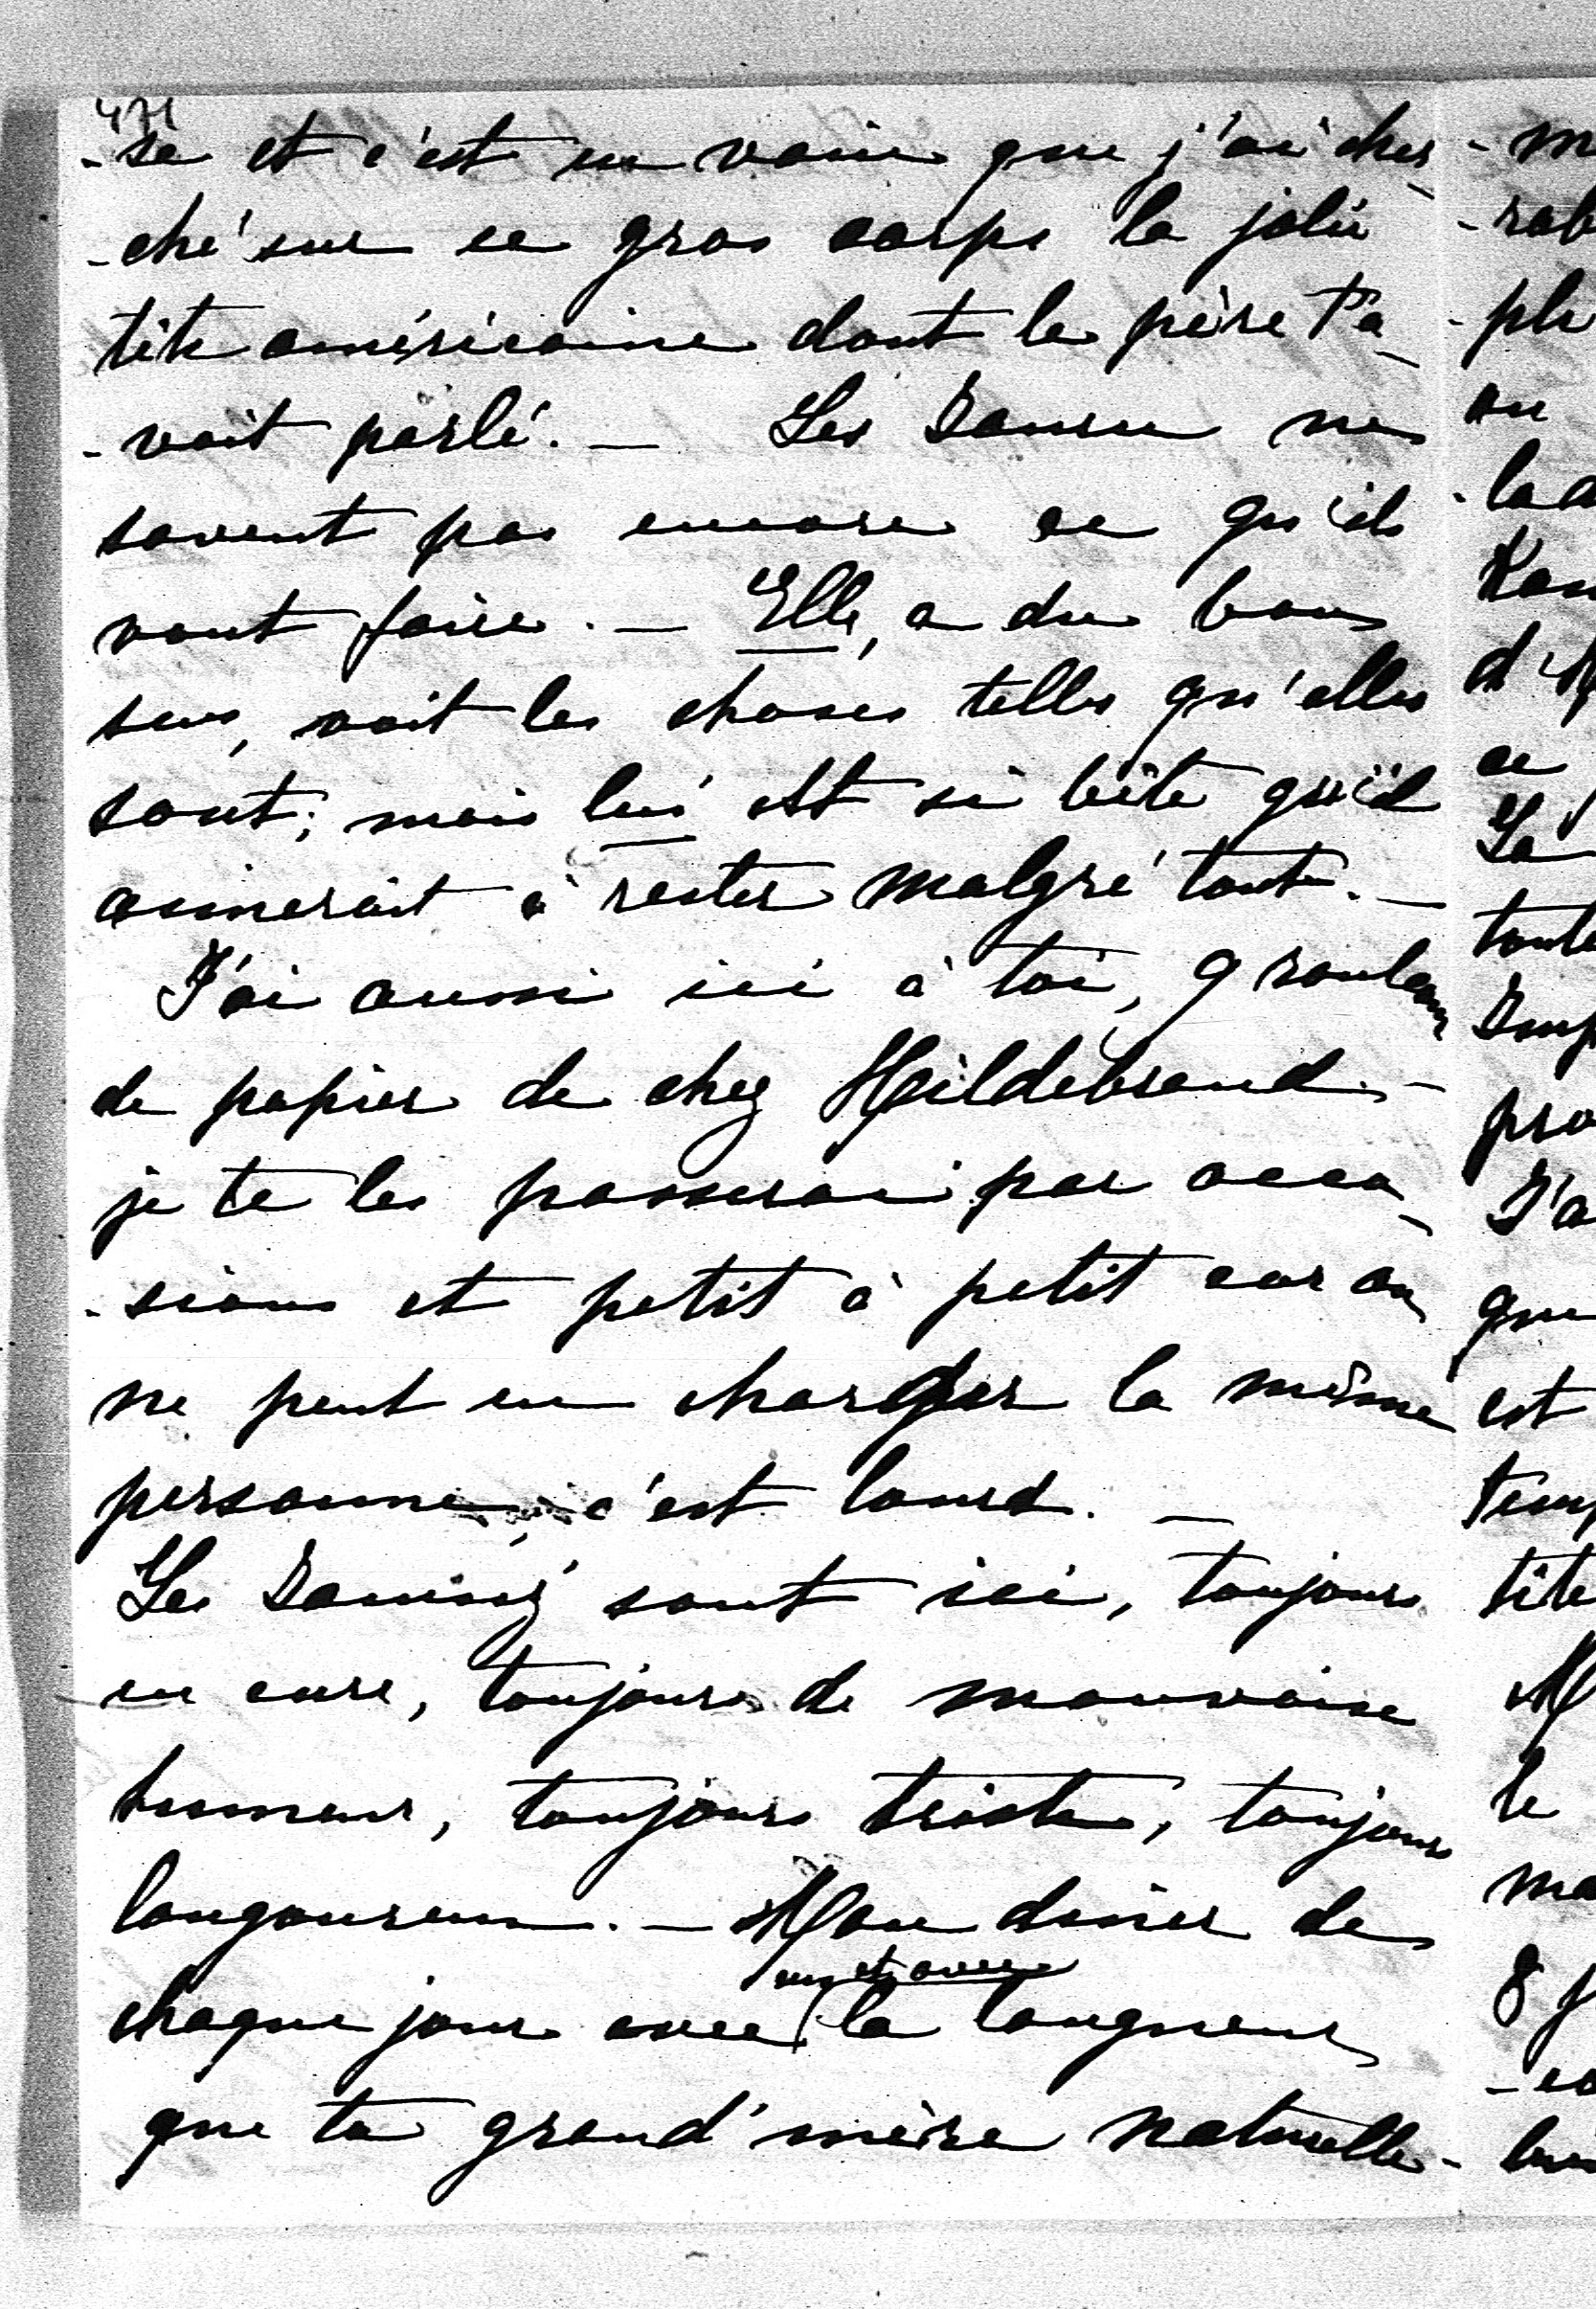 471
-se et c'est en vain que j'ai cher-
-ché sur ce gros corps la jolie
tête américaine dont le père t'a-
-vait parlé. — Les ne
savent pas encore ce qu'ils
vont faire. — Elle, a du bon
sens, voit les choses telles qu'elles
sont; mais lui est si bête qu'il
aimerait à rester malgré tout. —
J'ai aussi ici à toi, 9 rouleaux
de papier de chez Hildebrand. —
je te les passerai par occa-
-sions et petit à petit car on
ne peut en charger la même
personne, c'est lourd. —
Les sont ici, toujours
en cure, toujours de mauvaise
humeur, toujours triste, toujours
langoureux. — Mon diner de
chaque jour avec la langueur
que ta grand'mère naturelle-
-m
-rab
-ple
ou
-lad
d'M
ce
Le
toute
pro
J'a
que
est
temp
tête
M
le
ma
8 f
-co